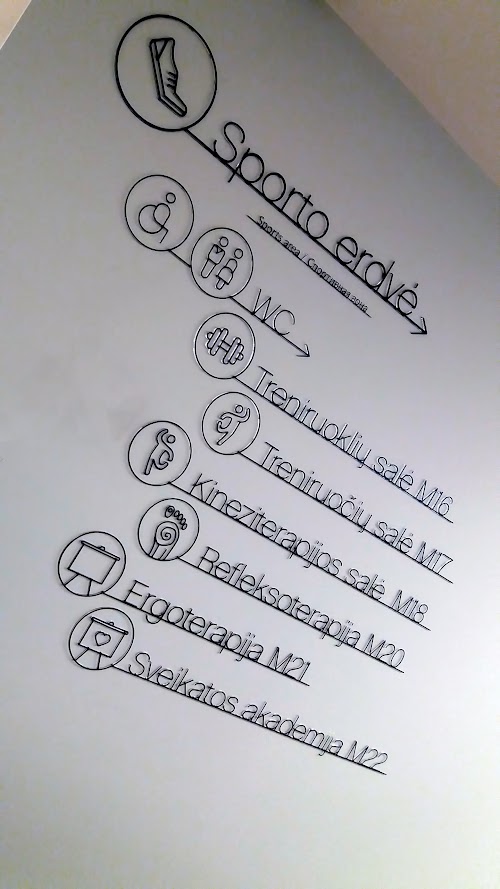 Sporto erdvė
Sports area / Спортивная зона
WC
Treniruoklių salė M16
Treniruočių salė M17
Kineziterapijos salė M18
Refleksoterapija M20
Ergoterapija M21
Sveikatos akademija M22